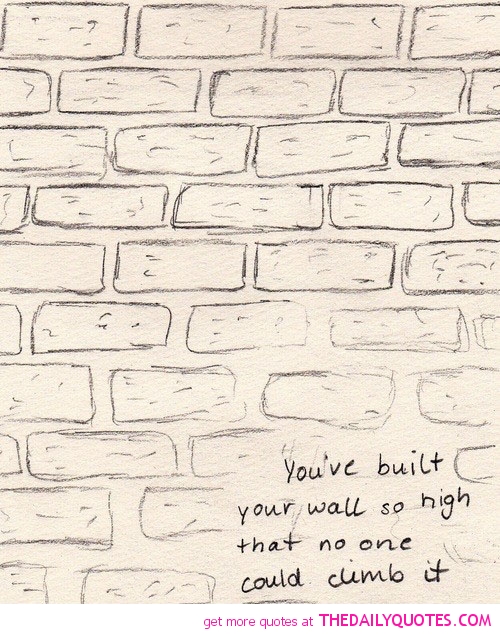 You've built
your wall so high
that no one
could climb it
get more quotes at THEDAILYQUOTES.COM